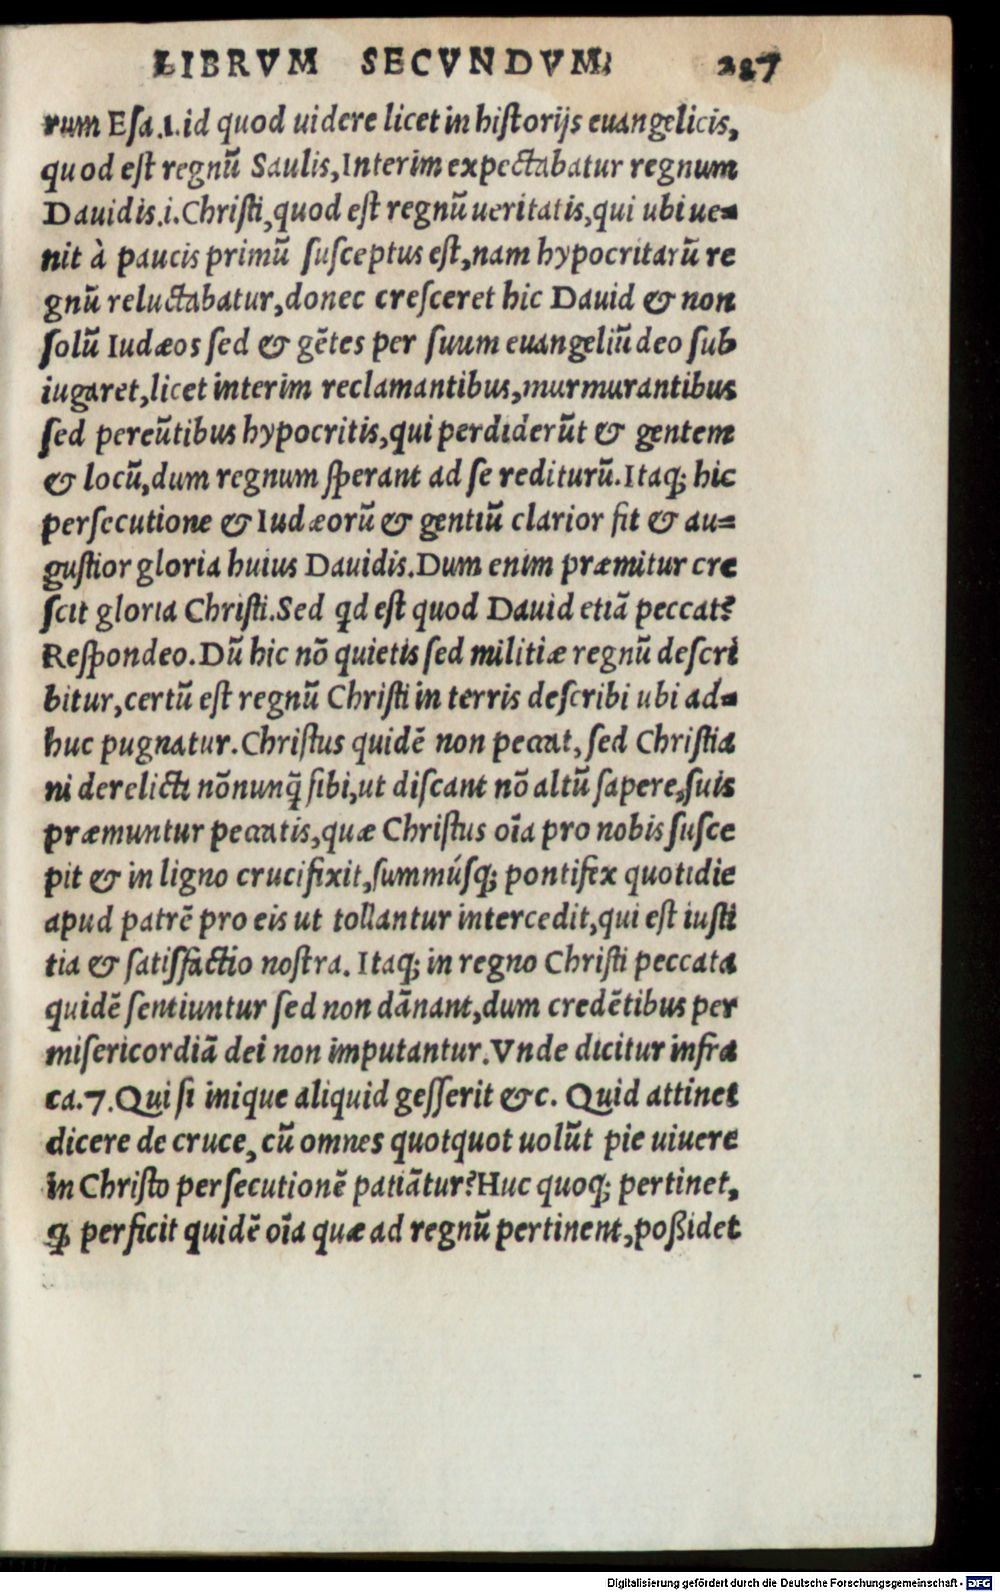 LIBRVM SECVNDVM. 287
rum Eſa.1.id quod uidere licet in hiſtorijs euangelicis,
quod eſt regnũ Saulis, Interim expectabatur regnum
Dauidis.i.Chriſti, quod eſt regnũ ueritatis, qui ubi ue-
nit à paucis primũ ſuſceptus eſt, nam hypocritarũ re
gnũ reluctabatur, donec creſceret hic Dauid & non
ſolũ Iudæos ſed & gẽtes per ſuum euangeliũ deo ſub
iugaret, licet interim reclamantibus, murmurantibus
ſed pereũtibus hypocritis, qui perdiderũt & gentem
& locũ, dum regnum ſperant ad ſe rediturũ. Itaq; hic
perſecutione & Iudæorũ & gentiũ clarior fit & au-
guſtior gloria huius Dauidis. Dum enim præmitur cre
ſcit gloria Chriſti. Sed qd eſt quod Dauid etiã peccat?
Reſpondeo. Dũ hic nõ quietis ſed militiæ regnũ deſcri
bitur, certũ eſt regnũ Chriſti in terris deſcribi ubi ad-
huc pugnatur. Chriſtus quidẽ non peccat, ſed Chriſtia
ni derelicti nõnunq̃ ſibi, ut diſcant nõ altũ ſapere, ſuis
præmuntur peccatis, quæ Chriſtus oĩa pro nobis ſuſce
pit & in ligno crucifixit, ſummúſq; pontifex quotidie
apud patrẽ pro eis ut tollantur intercedit, qui eſt iuſti
tia & ſatisfactio noſtra. Itaq; in regno Chriſti peccata
quidẽ ſentiuntur ſed non dãnant, dum credẽtibus per
miſericordiã dei non imputantur. Vnde dicitur infra
ca.7. Qui ſi inique aliquid geſſerit &c. Quid attinet
dicere de cruce, cũ omnes quotquot uolũt pie uiuere
in Chriſto perſecutionẽ patiãtur? Huc quoq; pertinet,
ꝙ perficit quidẽ oĩa quæ ad regnũ pertinent, poßidet
Digitalisierung gefördert durch die Deutsche Forschungsgemeinschaft - DFG